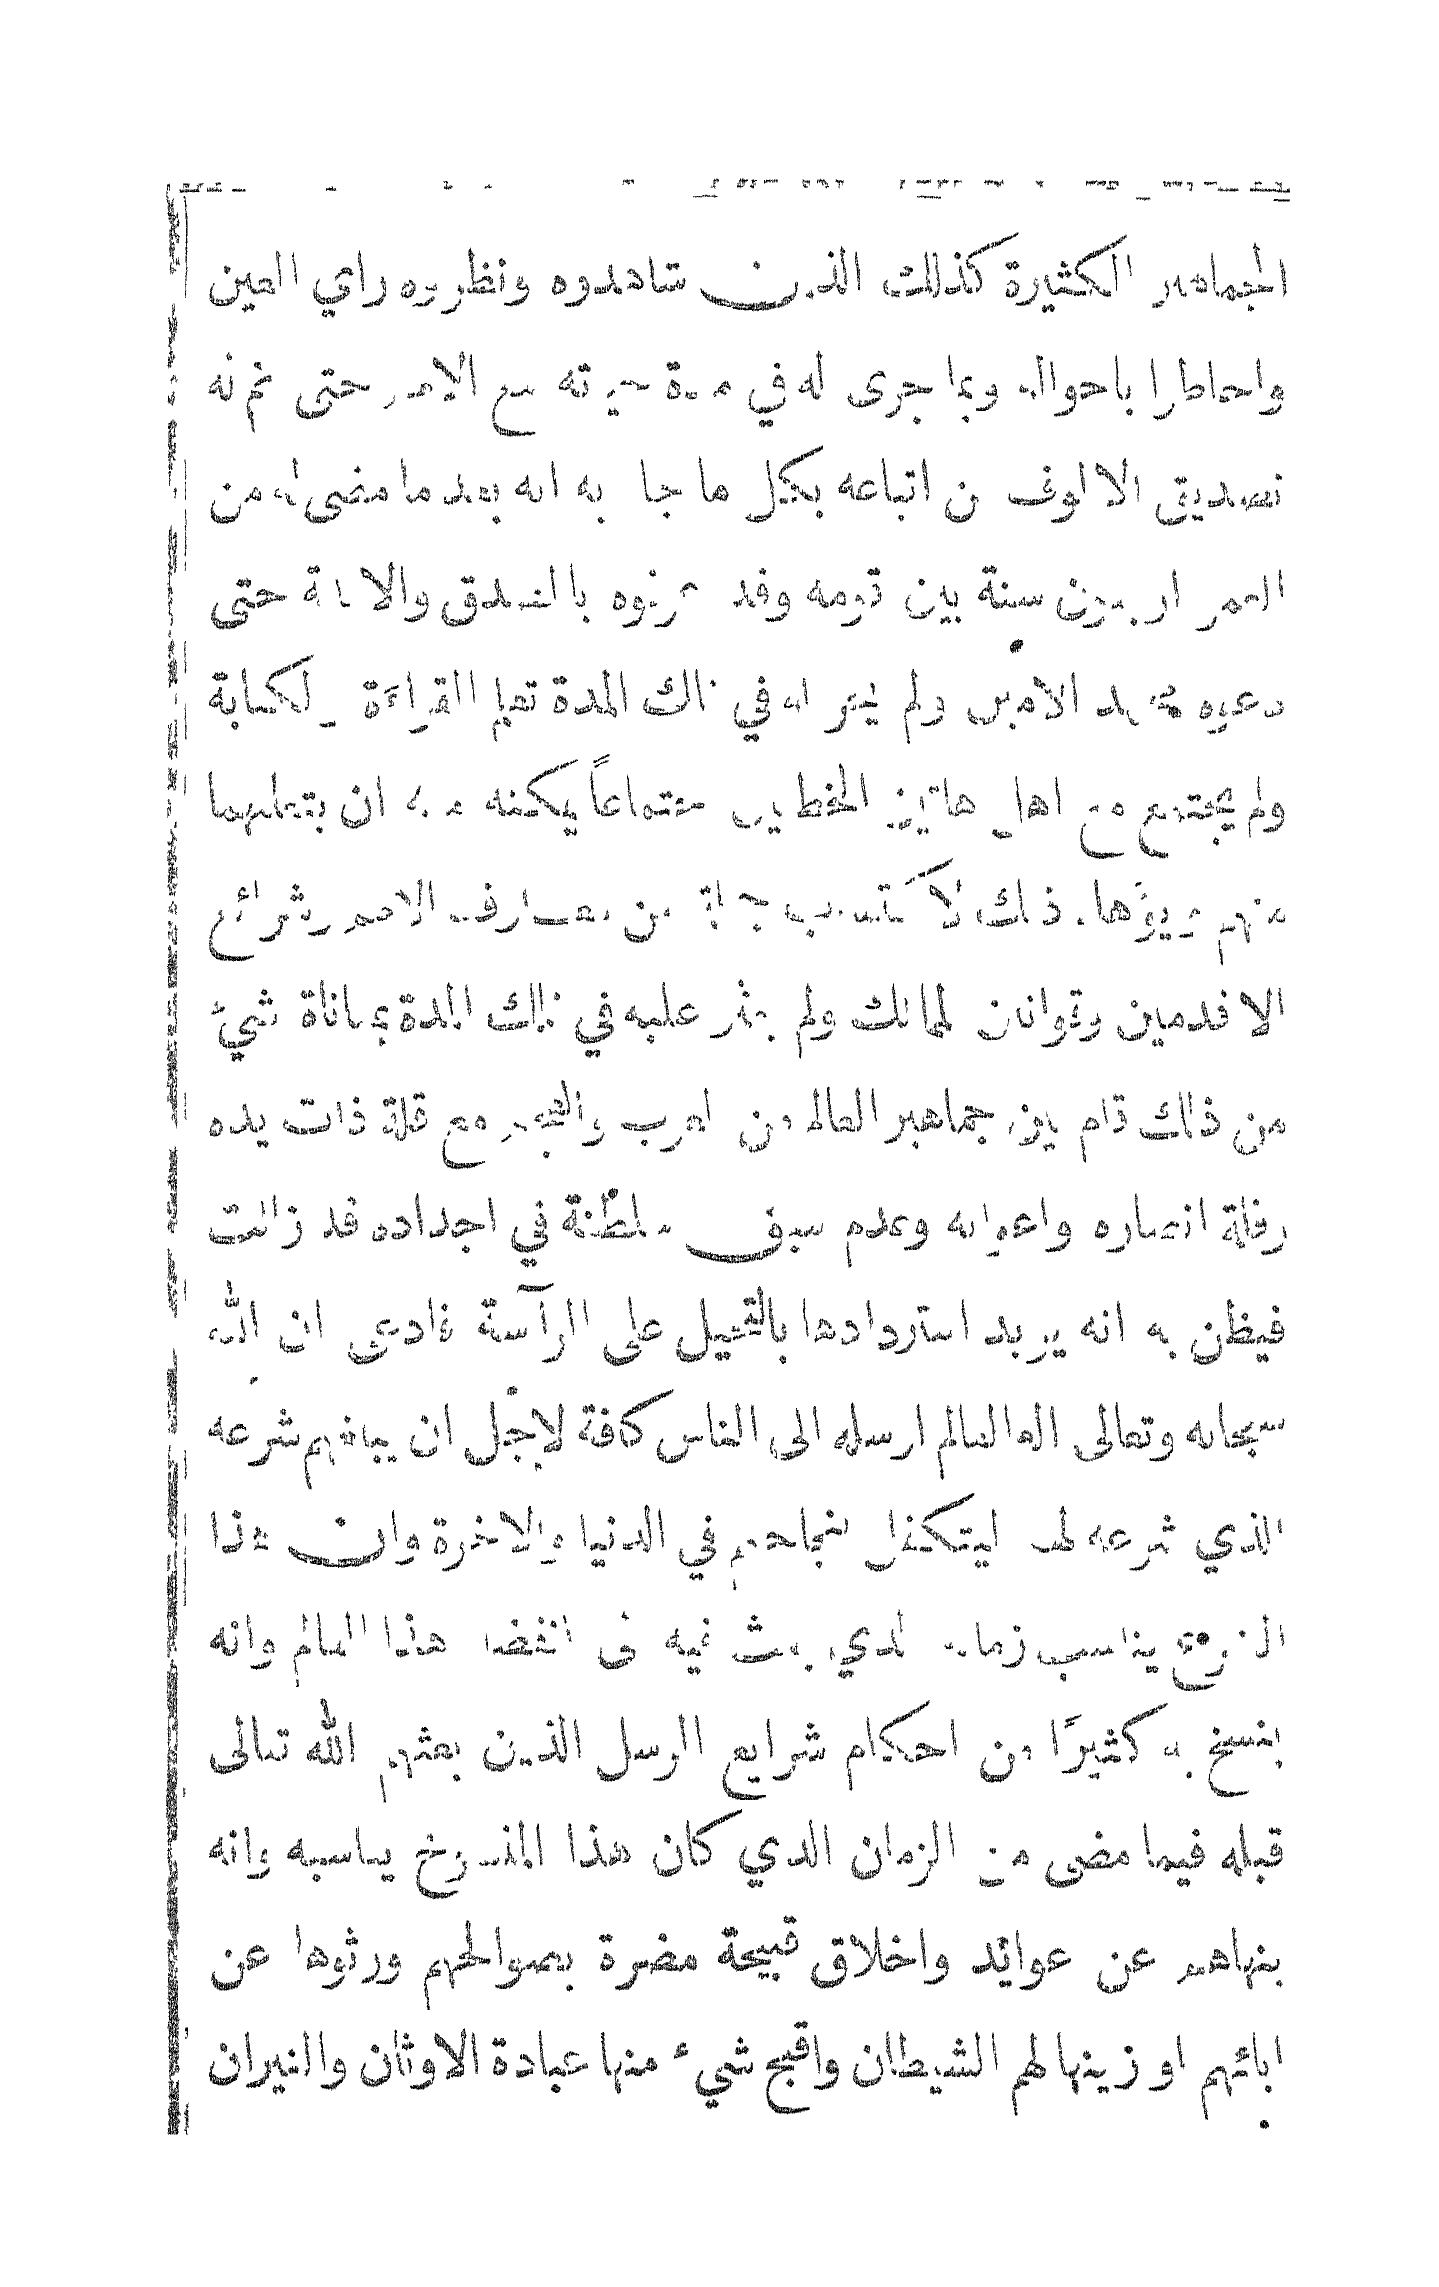 الجماهير الكثيرة كذلك الذين شاهدوه ونظروه راي العين
واحاطوا باحواله وبما جرى له في مدة حيوته مع الامم حتى
تصديق الالوف من اتباعه بكل ما جاء به انه بعد ما مضى له من
العمر اربعون سنة بين قومه وقد عرفوه بالصدق والامانة حتى
دعوه محمد الامين ولم يجر له في تلك المدة تعلم القراءة والكتابة
ولم يجتمع مع اهل هاتين الخطتين اجتماعاً يمكنه معه ان يتعلمهما
منهم ذلك لاكتساب جملة من معارف الامم وشرائع
الاقدمين وقوانين الممالك ولم يعثر عليه في تلك المدة بمعاناة شيء
من ذلك قام بين جماهير العالم من العرب والعجم مع قلة ذات يده
وقلة انصاره واعوانه وعدم سبق سلطنة في اجداده قد زالت
فيظن به انه يريد استردادها بالتحيل على الرآسة فادعى ان الله
سبحانه وتعالى اله العالم ارسله الى الناس كافة لاجل ان يبلغهم شرعه
الذي شرعه لهم ليتكفل بنجاحهم في الدنيا والاخرة وان هذا
الشرع يناسب زمانه الذي بعث فيه الى انقضاء هذا العالم وانه
ينسخ به كثيرًا من احكام شرايع الرسل الذين بعثهم الله تعالى
قبله فيما مضى من الزمان الذي كان هذا المنسوخ يناسبه وانه
ينهاهم عن عوائد واخلاق قبيحة مضرة بصوالحهم ورثوها عن
ابائهم او زينها لهم الشيطان واقبح شيء منها عبادة الاوثان والنيران